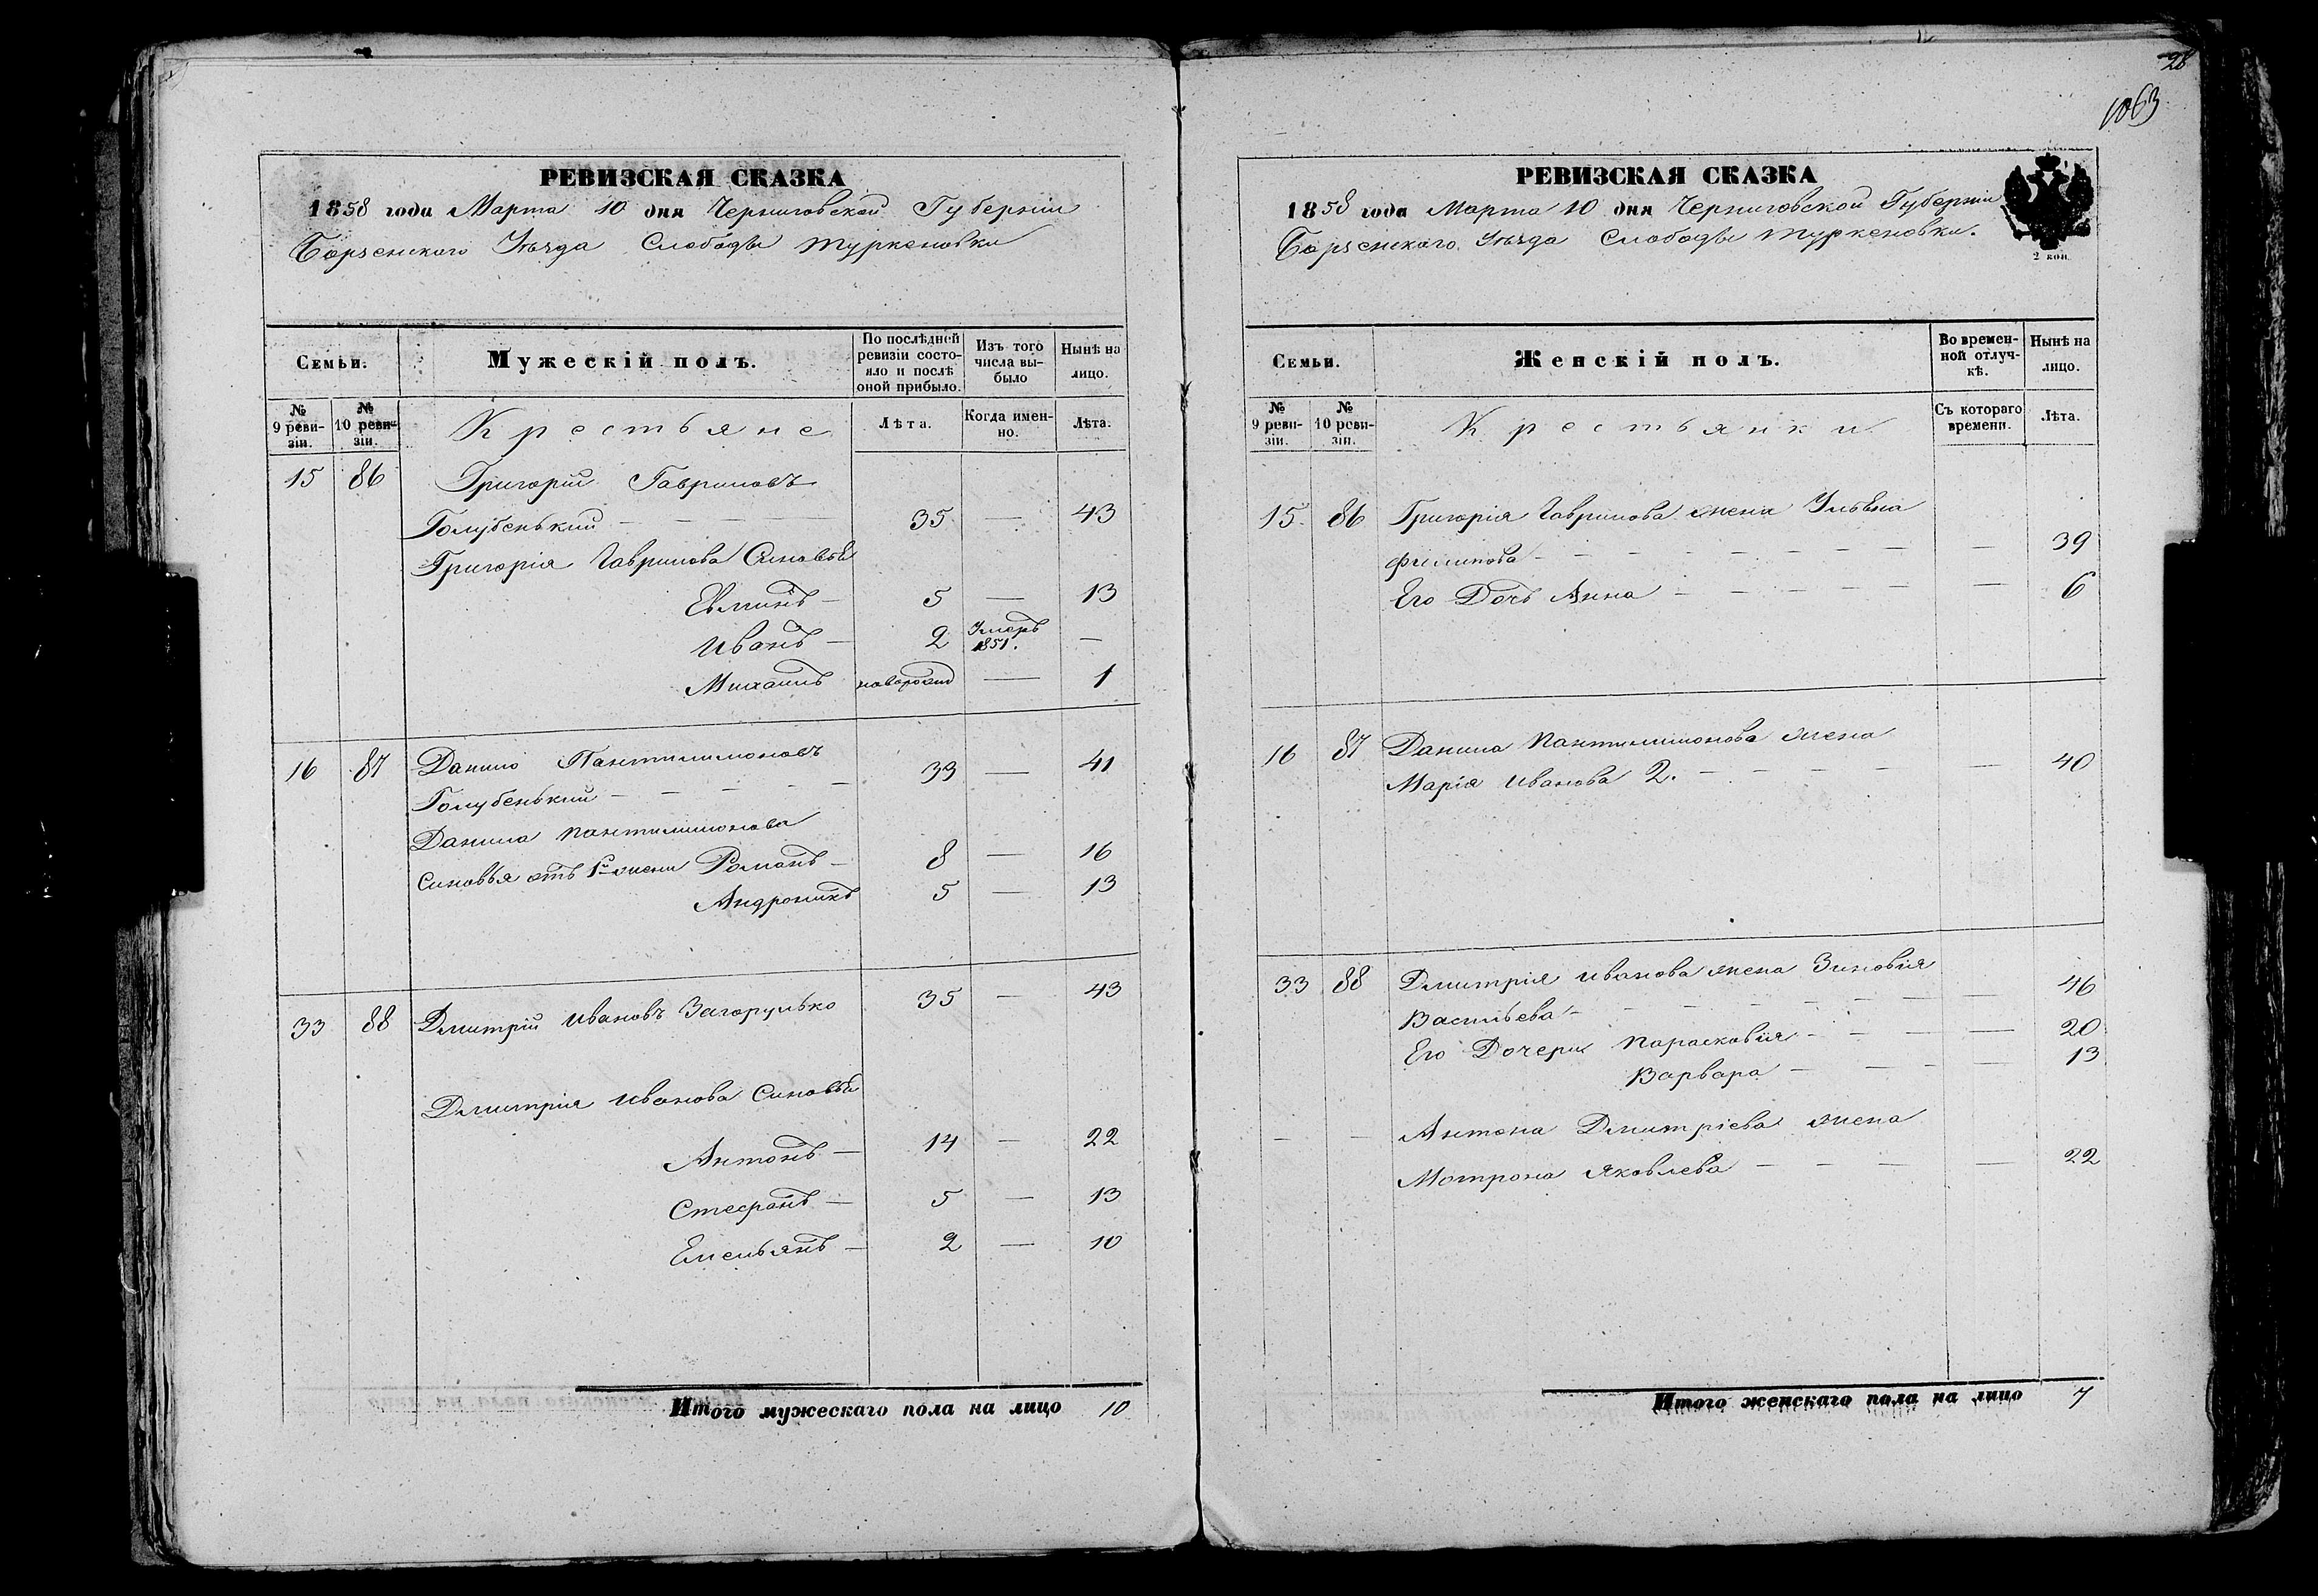 28
1063
РЕВИЗСКАЯ СКАЗКА
1858 года Марта 10 дня Черниговской Губерніи
Борзенскаго Уѣзда Слободы Туркеновки
Семьи.
Мужескій полъ.
По послѣдней ревизіи состояло и послѣ оной прибыло.
Изъ того числа выбыло
Нынѣ на лицо.
№ 9 ревизіи.
№ 10 ревизіи.
Крестьяне
Лѣта.
Когда именно.
Лѣта.
15 86 Григорій Гавриловъ
Голубенький — — — 35 — 43
Григорія Гаврилова Сыновья
Евминъ — 5 — 13
Иванъ — 2 Умеръ 1851. —
Михаилъ новорожд — 1
16 87 Данило Пантилимоновъ
Голубенький — — — — — 33 — 41
Данила Пантилимонова
Сыновья отъ 1й жены Романъ — 8 — 16
Андроникъ 5 — 13
33 88 Дмитрій Ивановъ Загорулько 35 — 43
Дмитрія Иванова Сыновья
Антонъ — 14 — 22
Стефанъ — 5 — 13
Емельянъ — 2 — 10
Итого мужескаго пола на лицо 10
РЕВИЗСКАЯ СКАЗКА
1858 года Марта 10 дня Черниговской Губерніи
Борзенскаго Уѣзда Слободы Туркеновки.
2 коп.
Семьи.
Женскій полъ.
Во временной отлучкѣ.
Нынѣ на лицо.
№ 9 ревизіи.
№ 10 ревизіи.
Крестьянки
Съ котораго времени.
Лѣта.
15. 86 Григорія Гаврилова жена Ульяна
Филипова — — — — — — — — 39
Его Дочь Анна — — — — — 6
16 87 Данила Пантилимонова жена
Марія Иванова 2. — — — — — 40
33 88 Дмитрія Иванова жена Зиновія
Васильева — — — — — — — 46
Его Дочери Парасковія — — — — 20
Варвара — — — — 13
— — Антона Дмитріева жена
Мотрона Яковлева — — — — 22
Итого женскаго пола на лицо 7